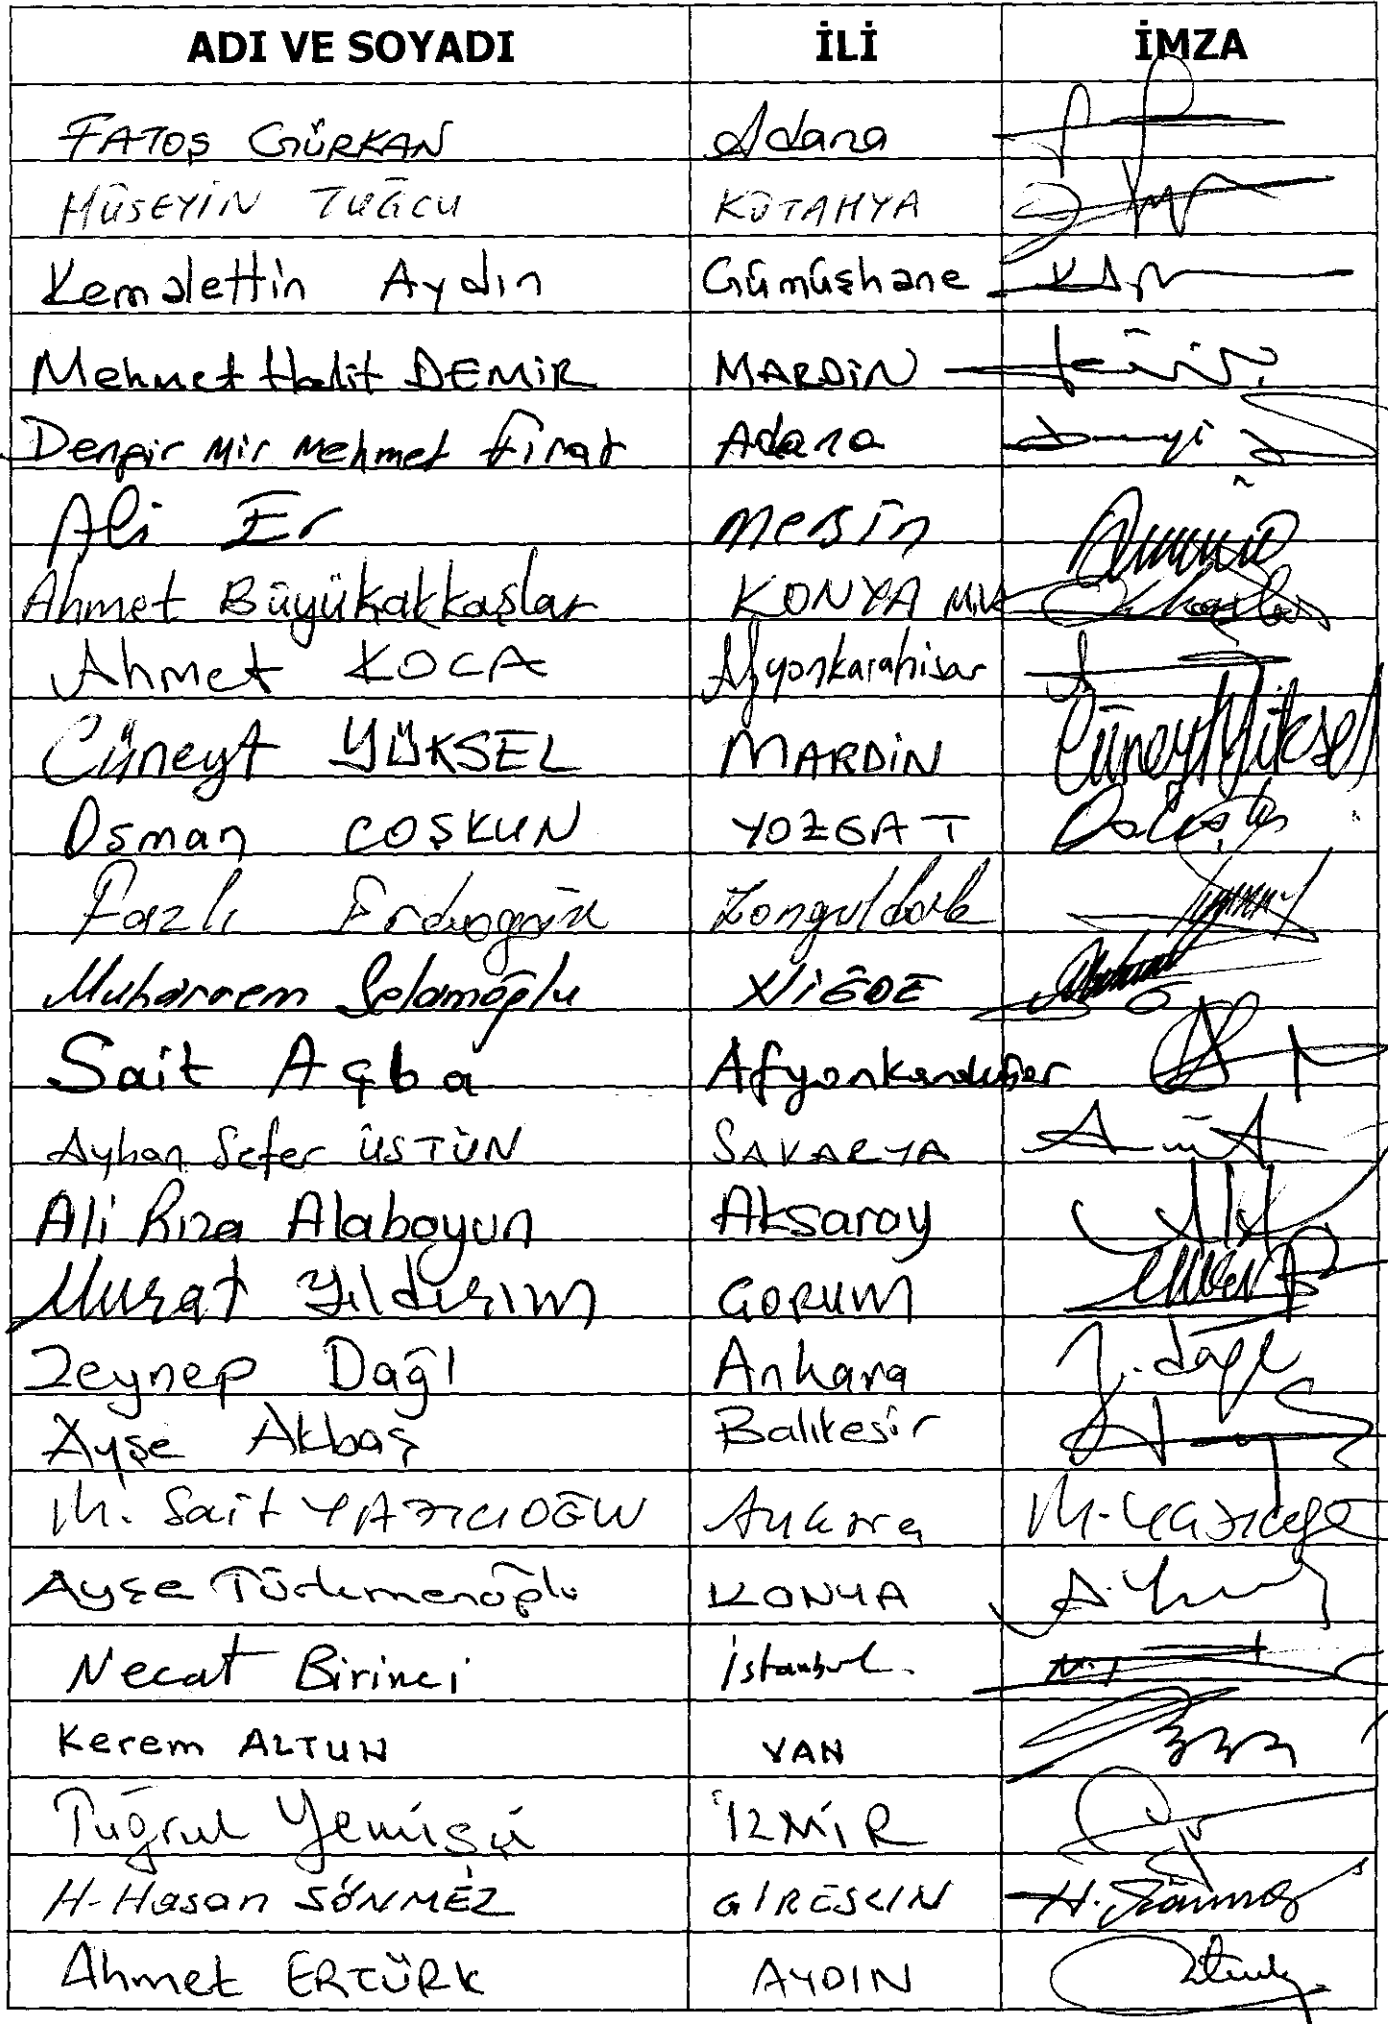 ADI VE SOYADI İLİ İMZA
FATOŞ GÜRKAN Adana
HÜSEYİN TUĞCU KÜTAHYA
Kemalettin Aydın Gümüşhane
Mehmet Halit DEMİR MARDİN
Dengir Mir Mehmet Fırat Adana
Ali Er Mersin
Ahmet Büyükakkaşlar KONYA M.V.
Ahmet KOCA Afyonkarahisar
Cüneyt YÜKSEL MARDİN Cüneyt Yüksel
Osman COŞKUN YOZGAT
Fazlı Erdoğan Zonguldak
Muharrem Selamoğlu NİĞDE
Sait Açba Afyonkarahisar
Ayhan Sefer ÜSTÜN SAKARYA
Ali Rıza Alaboyun Aksaray
Murat Yıldırım ÇORUM
Zeynep Dağı Ankara
Ayşe Akbaş Balıkesir
M. Sait YAZICIOĞLU Ankara
Ayşe Türkmenoğlu KONYA
Necat Birinci İstanbul.
Kerem ALTUN VAN
Tuğrul Yemişçi İZMİR
H. Hasan SÖNMEZ GİRESUN
Ahmet ERTÜRK AYDIN